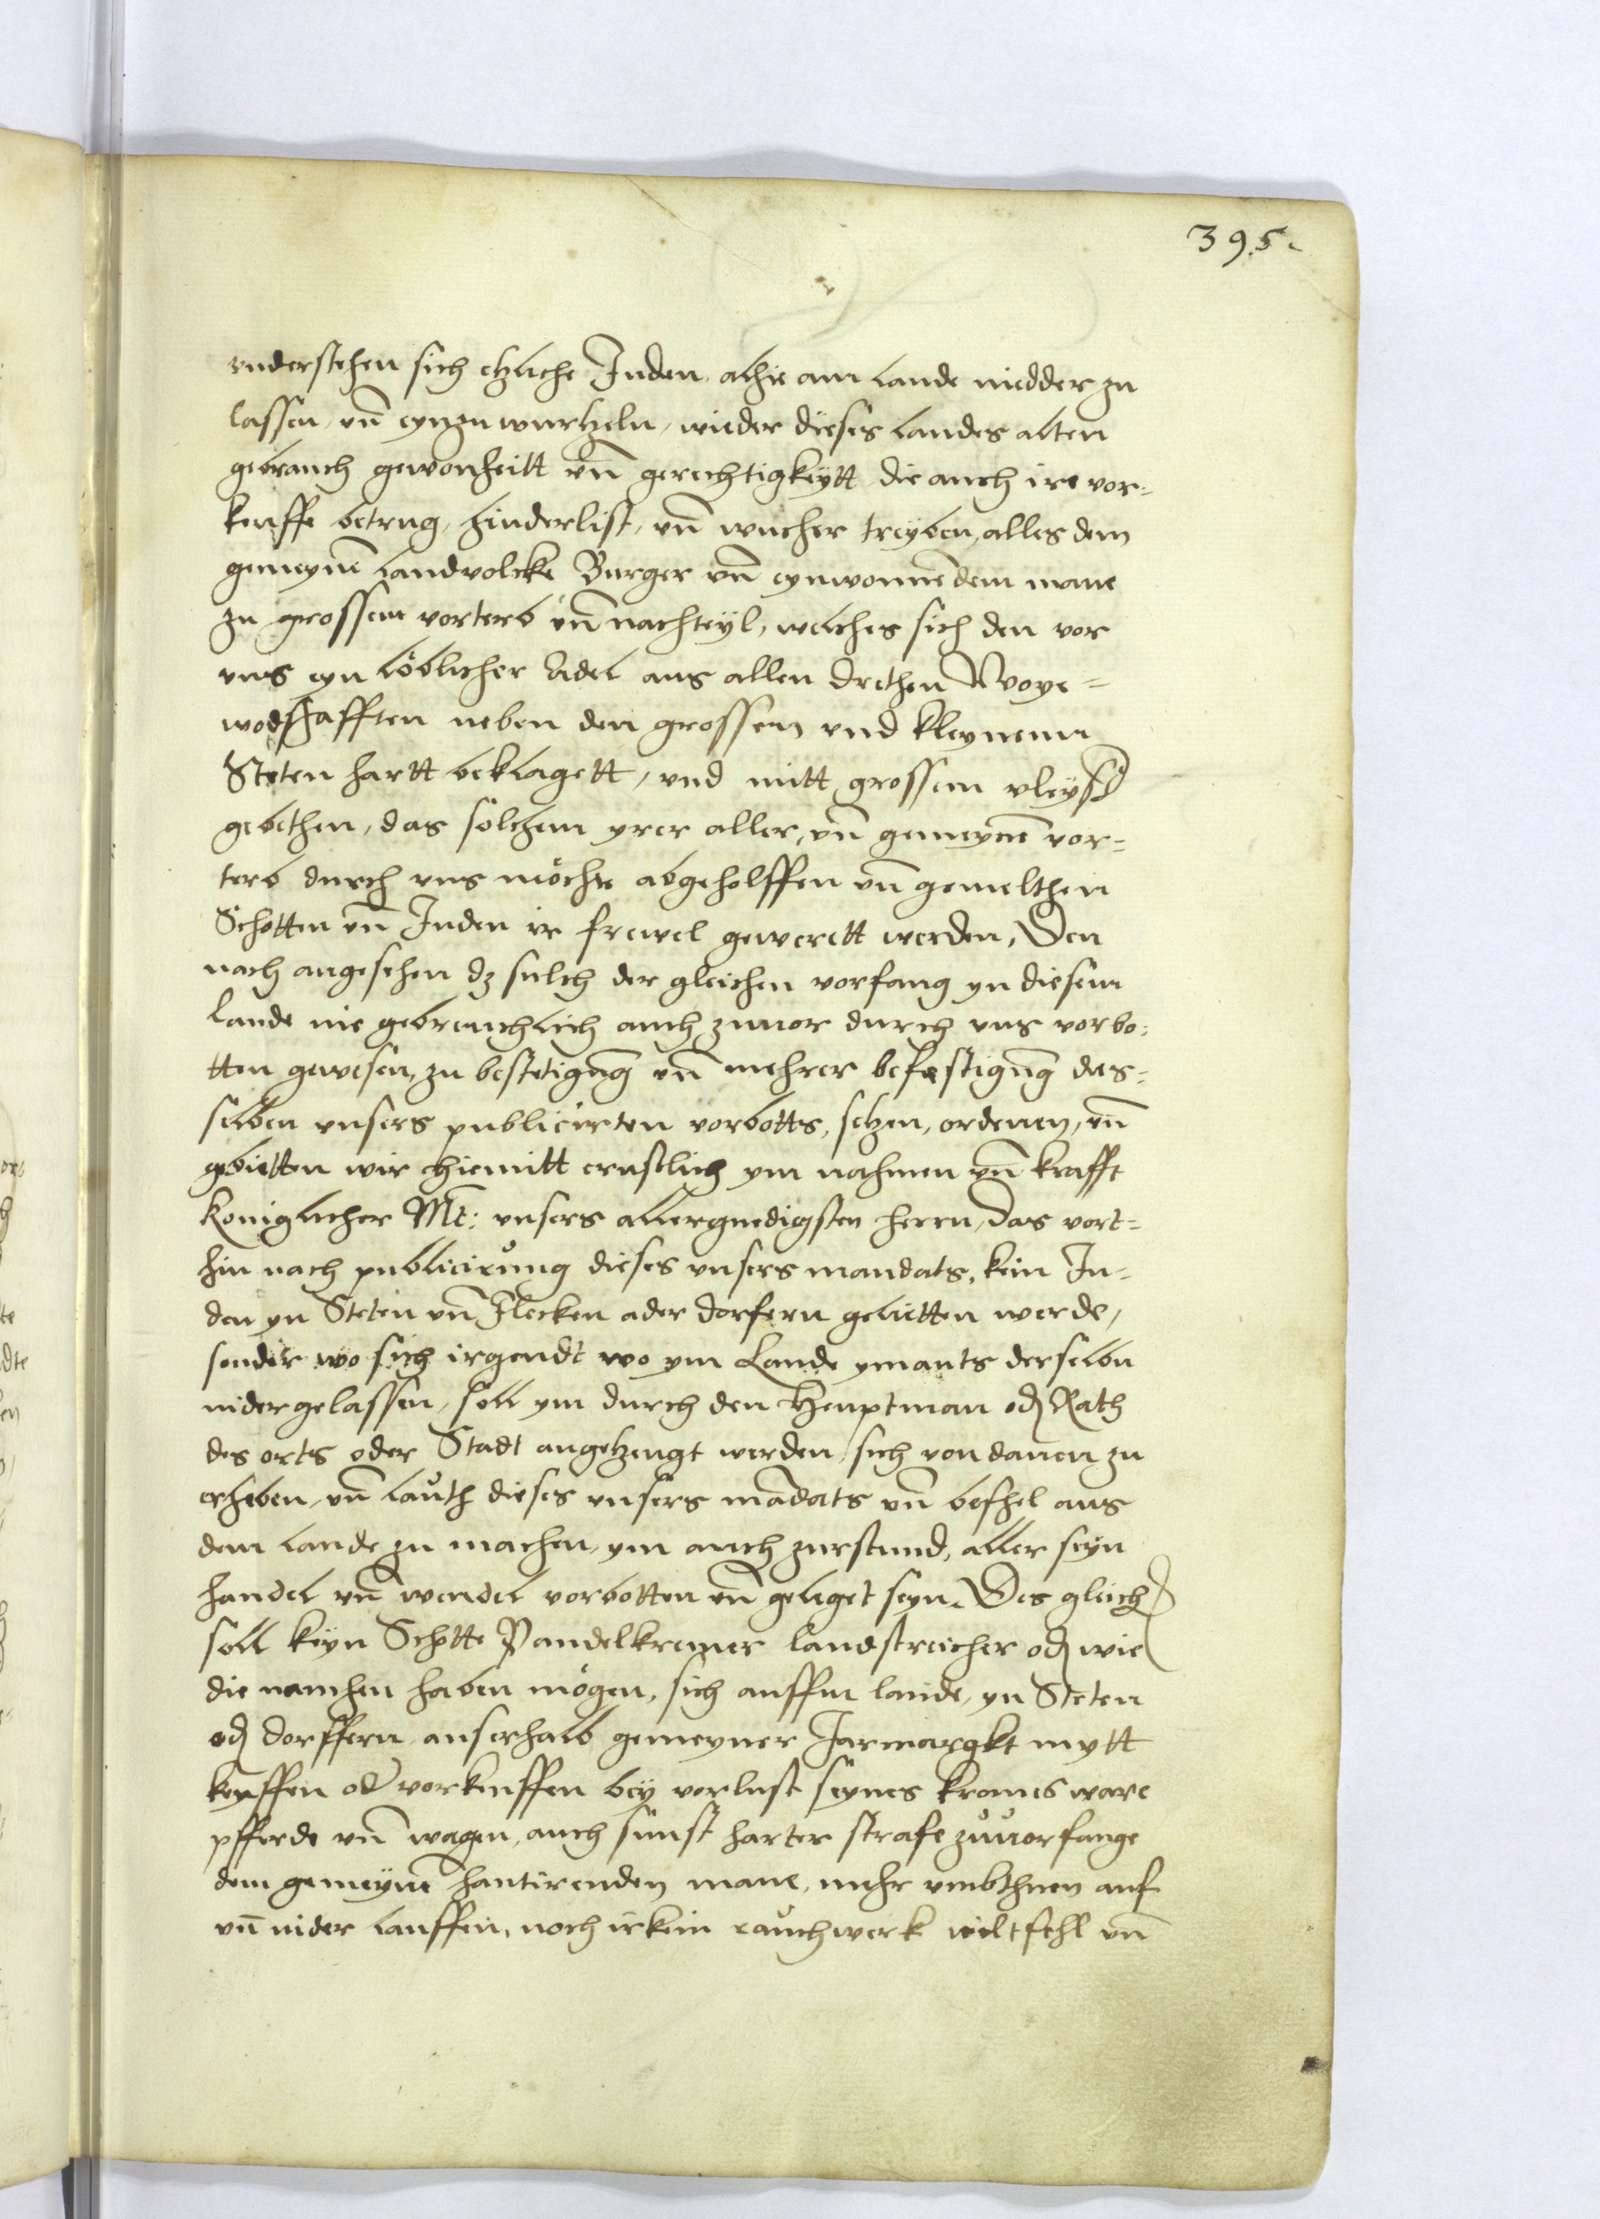 395.
vnderstehen sich ezliche Juden alhie am lande niedder zu
lassen, vn̄ eynzuwurtzeln, wieder dieses landes alten
gebrauch gewonheitt vn̄ gerechtigkeytt die auch ire vor=
keuffe betrug, hinderlist, vn̄ wucher treyben, alles dem
gemeyne̅ landvolcke Burger vn̄ eynwonne̅dem mane
zu grossem vorterb vn̄ nachteyl, welches sich den vor
vns eyn löblicher Adel aus allen drethen Woye=
wodschafften neben den grossen vnd kleynenn
Steten hartt beklagett, vnd mitt grossem vleyss
gebethen, das solchem yrer aller, vn̄ gemeyne̅ vor=
terb durch vns möchte abgeholffen vn̄ gemelthen
Schotten vn̄ Juden ir frewel gewerett werden, Den
nach angesehen dz sulch der gleichen vorfang yn diesem
Lande nie gebreuchlich auch zuuor durch vns vorbo=
tten gewesen, zu bestetigūg vn̄ mehrer befestigūg des=
selben vnsers publicirten vorbotts, setzen, ordenen, vn̄
gebietten wir hiemitt ernstlich ym nahmen vn̄ krafft
Koniglicher Mt: vnsers allergnedigsten herrn, das vort=
hin nach publicirung dieses vnsers mandats, kein Ju=
den yn Steten vn̄ Flecken ader dorfern gelietten werde,
sonder wo sich irgendt wo ym Lande ymants derselbn
nidergelassen, soll ym durch den Heuptman od Rath
des orts oder Stadt angetzeugt werden, sich von danen zu
erheben, vn̄ lauth dieses vnsers ma̅dats vn̄ befhel aus
dem lande zu machen, ym auch zurstund, aller seyn
handel vn̄ wandel vorbotten vn̄ geleget seyn. Des gleich
soll keyn Schotte Paudelkremer landstreicher od wie
die namhen haben mögen, sich auffm lande, yn Steten
od dorffern auserhalb gemeyner Jarmargkt mytt
keuffen od vorkeuffen bey vorlust seynes krames ware
pfferde vn̄ wagen, auch sunst harter strafe zuuorfange
dem gemeyne̅ hantirenden mane, mehr vmbthuen auf
vn̄ nider lauffen, noch irkein rauchwerk wiltfehl vn̄